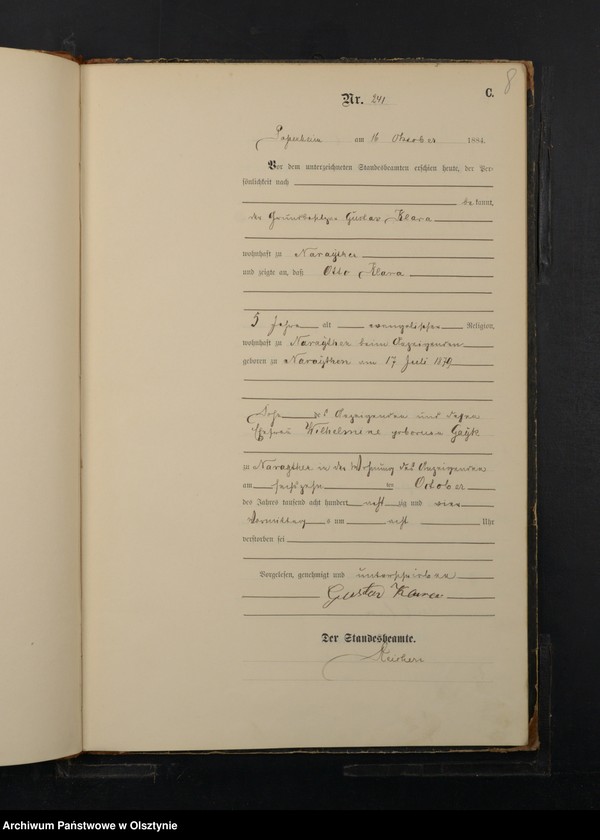 8
C.
Nr. 241
am 16 Oktober 1884.
Vor dem unterzeichneten Standesbeamten erschien heute, der Per-
sönlichkeit nach
be kannt,
der Grundbesitzer Gustav Klara
wohnhaft zu Naraythen
und zeigte an, daß Otto Klara
5 Jahre alt evangelischer Religion,
wohnhaft zu Naraythen beim Anzeigenden
geboren zu Naraythen am 17 Juli 1879
Sohn des Anzeigenden und dessen
Ehefrau Wilhelmine geborenen
zu Naraythen in der Wohnung des Anzeigenden
am sechszehn ten October
des Jahres tausend acht hundert acht zig und vier
Vormittag s um acht Uhr
verstorben sei
Vorgelesen, genehmigt und unterschrieben
Gustav Klara
Der Standesbeamte.
Archiwum Państwowe w Olsztynie